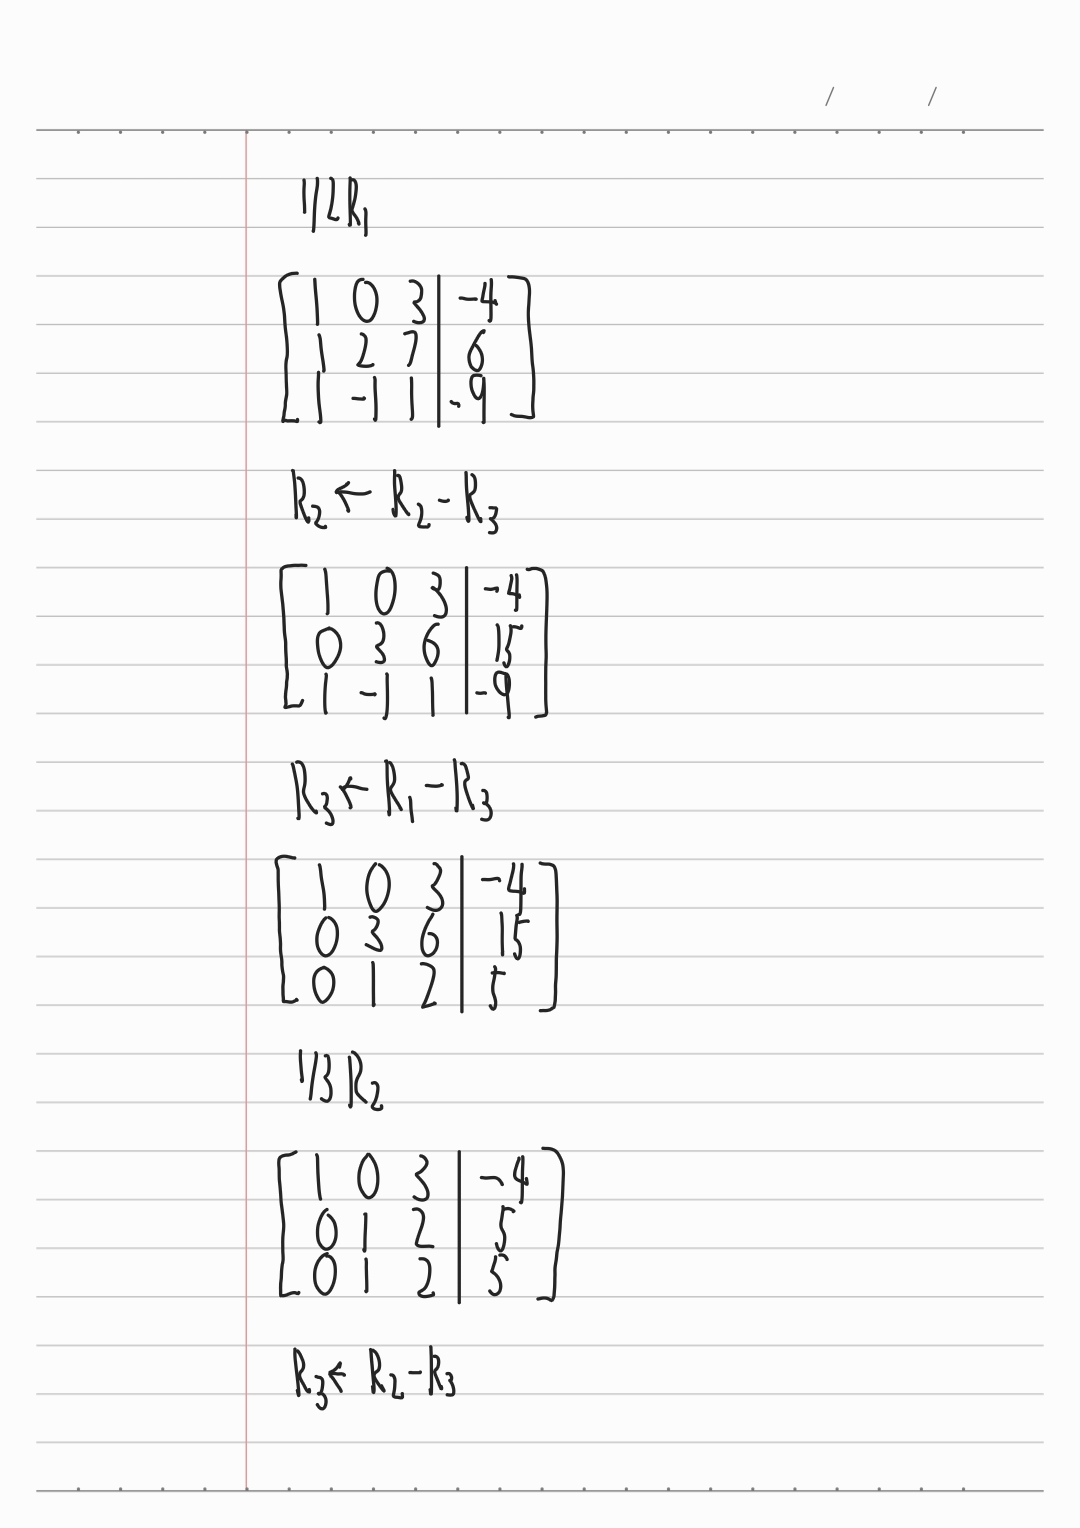 1/2R₁
[ 1 0 3 | -4 ]
[ 1 2 7 | 6 ]
[ 1 -1 1 | -9 ]
R₂ ← R₂ - R₃
[ 1 0 3 | -4 ]
[ 0 3 6 | 15 ]
[ 1 -1 1 | -9 ]
R₃ ← R₁ - R₃
[ 1 0 3 | -4 ]
[ 0 3 6 | 15 ]
[ 0 1 2 | 5 ]
1/3 R₂
[ 1 0 3 | -4 ]
[ 0 1 2 | 5 ]
[ 0 1 2 | 5 ]
R₃ ← R₂ - R₃